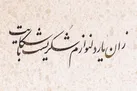 زان یار دلنوازم شکریست با شکایت